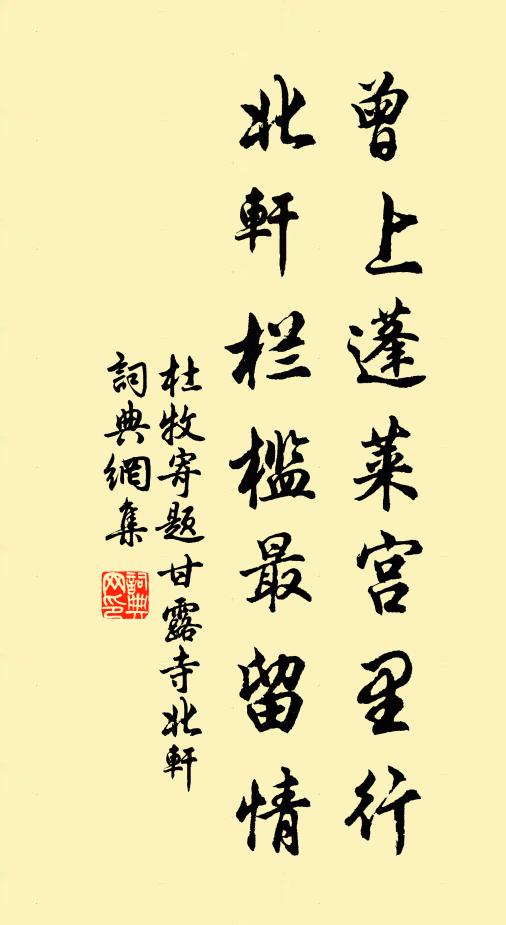 曾上蓬萊宫里行
北軒栏檻最留情
杜牧寄题甘露寺北軒
詞典網集
詞典
网印